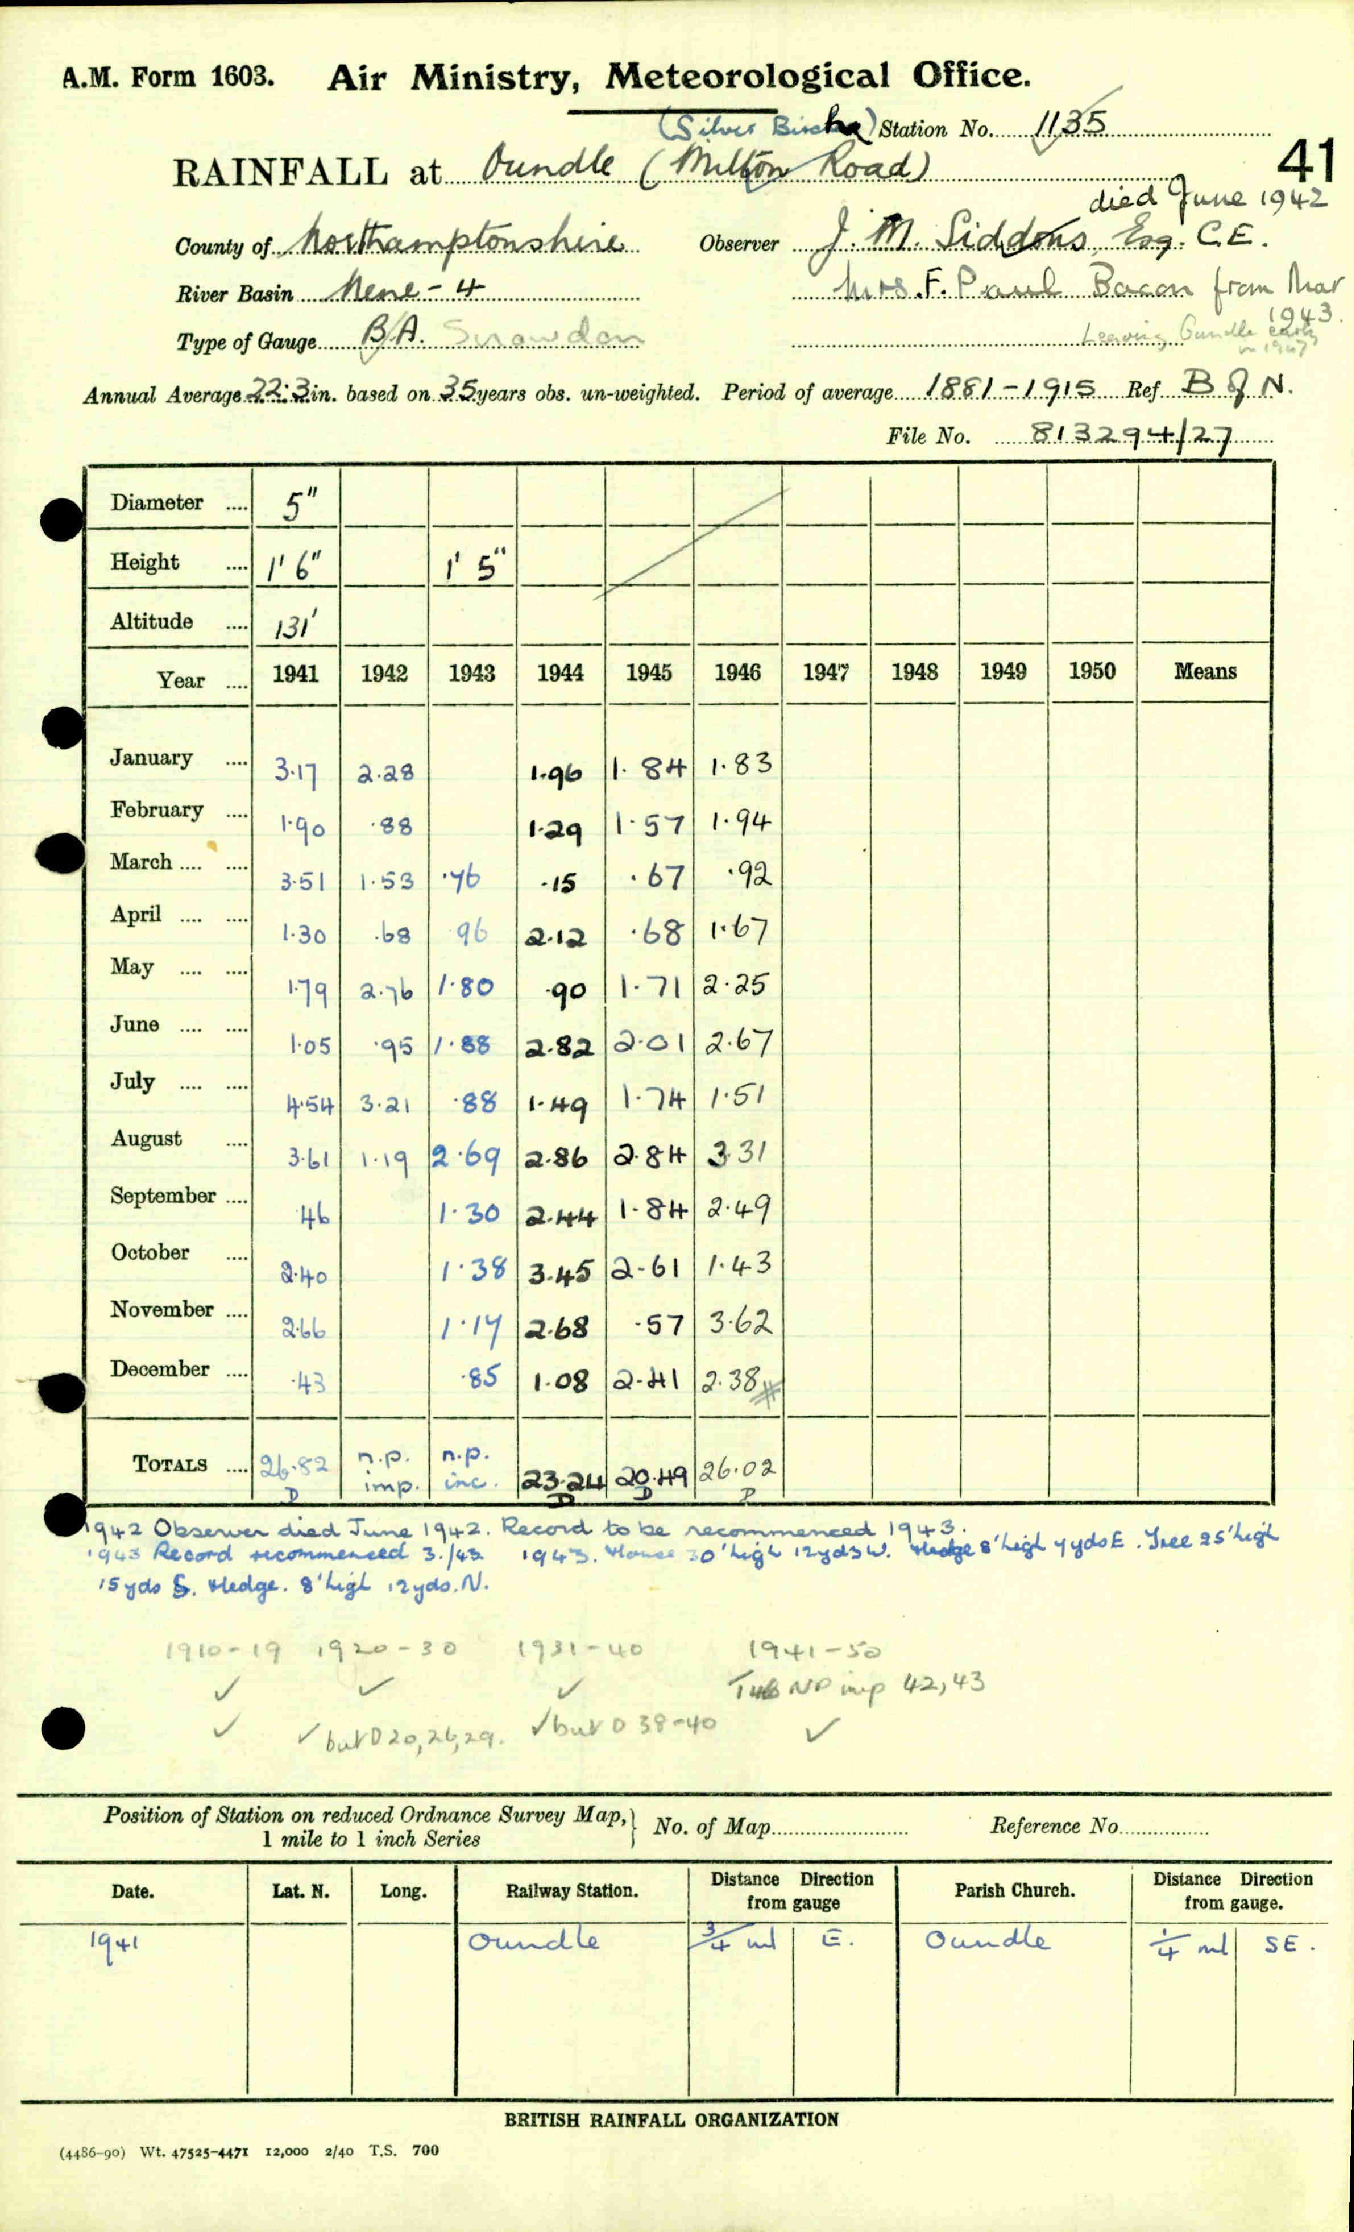 A.M. Form 1603. Air Ministry, Meteorological Office.
(Silver Birches) Station No. 1135
41
RAINFALL at Oundle (Milton Road)
died June 1942
County of Northamptonshire Observer J. M. Siddons, Esq. C.E.
River Basin Nene - 4 Mrs. F. Paul Bacon from Mar 1943.
Type of Gauge B.A. Snowdon Leaving Oundle early in 1947
Annual Average 22.3 in. based on 35 years obs. un-weighted. Period of average 1881-1915 Ref B of N.
File No. 813294/27
Diameter .... 5"
Height .... 1' 6" 1' 5"
Altitude .... 131'
Year .... 1941 1942 1943 1944 1945 1946 1947 1948 1949 1950 Means
January .... 3.17 2.28 1.96 1.84 1.83
February .... 1.90 .88 1.29 1.57 1.94
March .... .... 3.51 1.53 .76 .15 .67 .92
April .... .... 1.30 .68 96 2.12 .68 1.67
May .... .... 1.79 2.76 1.80 .90 1.71 2.25
June .... .... 1.05 .95 1.88 2.82 2.01 2.67
July .... .... 4.54 3.21 .88 1.49 1.74 1.51
August .... 3.61 1.19 2.69 2.86 2.84 3.31
September .... .46 1.30 2.44 1.84 2.49
October .... 2.40 1.38 3.45 2.61 1.43
November .... 2.66 1.17 2.68 .57 3.62
December .... .43 .85 1.08 2.41 2.38
TOTALS .... 26.82 n.p. n.p. 23.24 20.49 26.02
D imp. inc. D D D
1942 Observer died June 1942. Record to be recommenced 1943.
1943 Record recommenced 3./43. 1943. House 30' high 12yds W. Hedge 8' high 7yds E. Tree 25' high
15yds S. Hedge. 8' high 12yds. N.
1910-19 1920-30 1931-40 1941-50
✓ ✓ ✓ NP imp 42,43
✓ ✓ but D 20,26,29. ✓ but D 38-40 ✓
Position of Station on reduced Ordnance Survey Map, } No. of Map Reference No
1 mile to 1 inch Series
Date. Lat. N. Long. Railway Station. Distance Direction from gauge Parish Church. Distance Direction from gauge.
1941 Oundle 3/4 ml E. Oundle 1/4 ml SE.
BRITISH RAINFALL ORGANIZATION
(4486-90) Wt. 47525-4471 12,000 2/40 T.S. 700